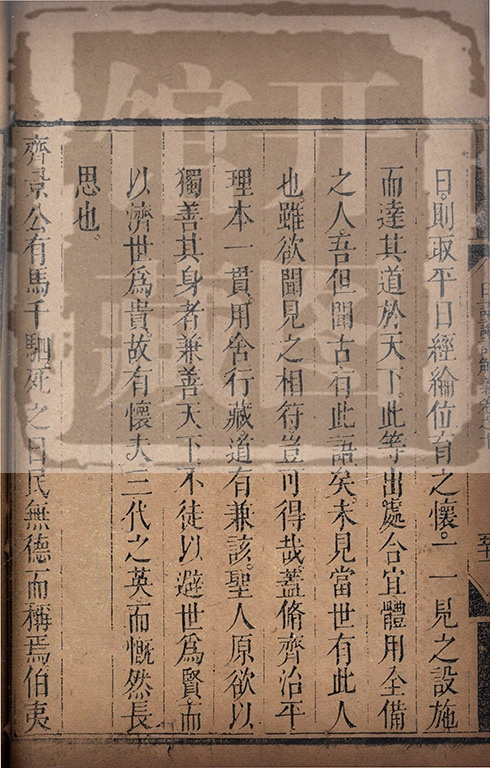 日則取平日經綸位育之懷一一見之設施
而達其道於天下此等出處合宜體用全備
之人吾但聞古有此語矣未見當世有此人
也雖欲聞見之相符豈可得哉蓋脩齊治平
理本一貫用舍行藏道有兼該聖人原欲以
獨善其身者兼善天下不徒以避世爲賢而
以濟世爲貴故有懷夫三代之英而慨然長
思也
齊景公有馬千駟死之日民無德而稱焉伯夷